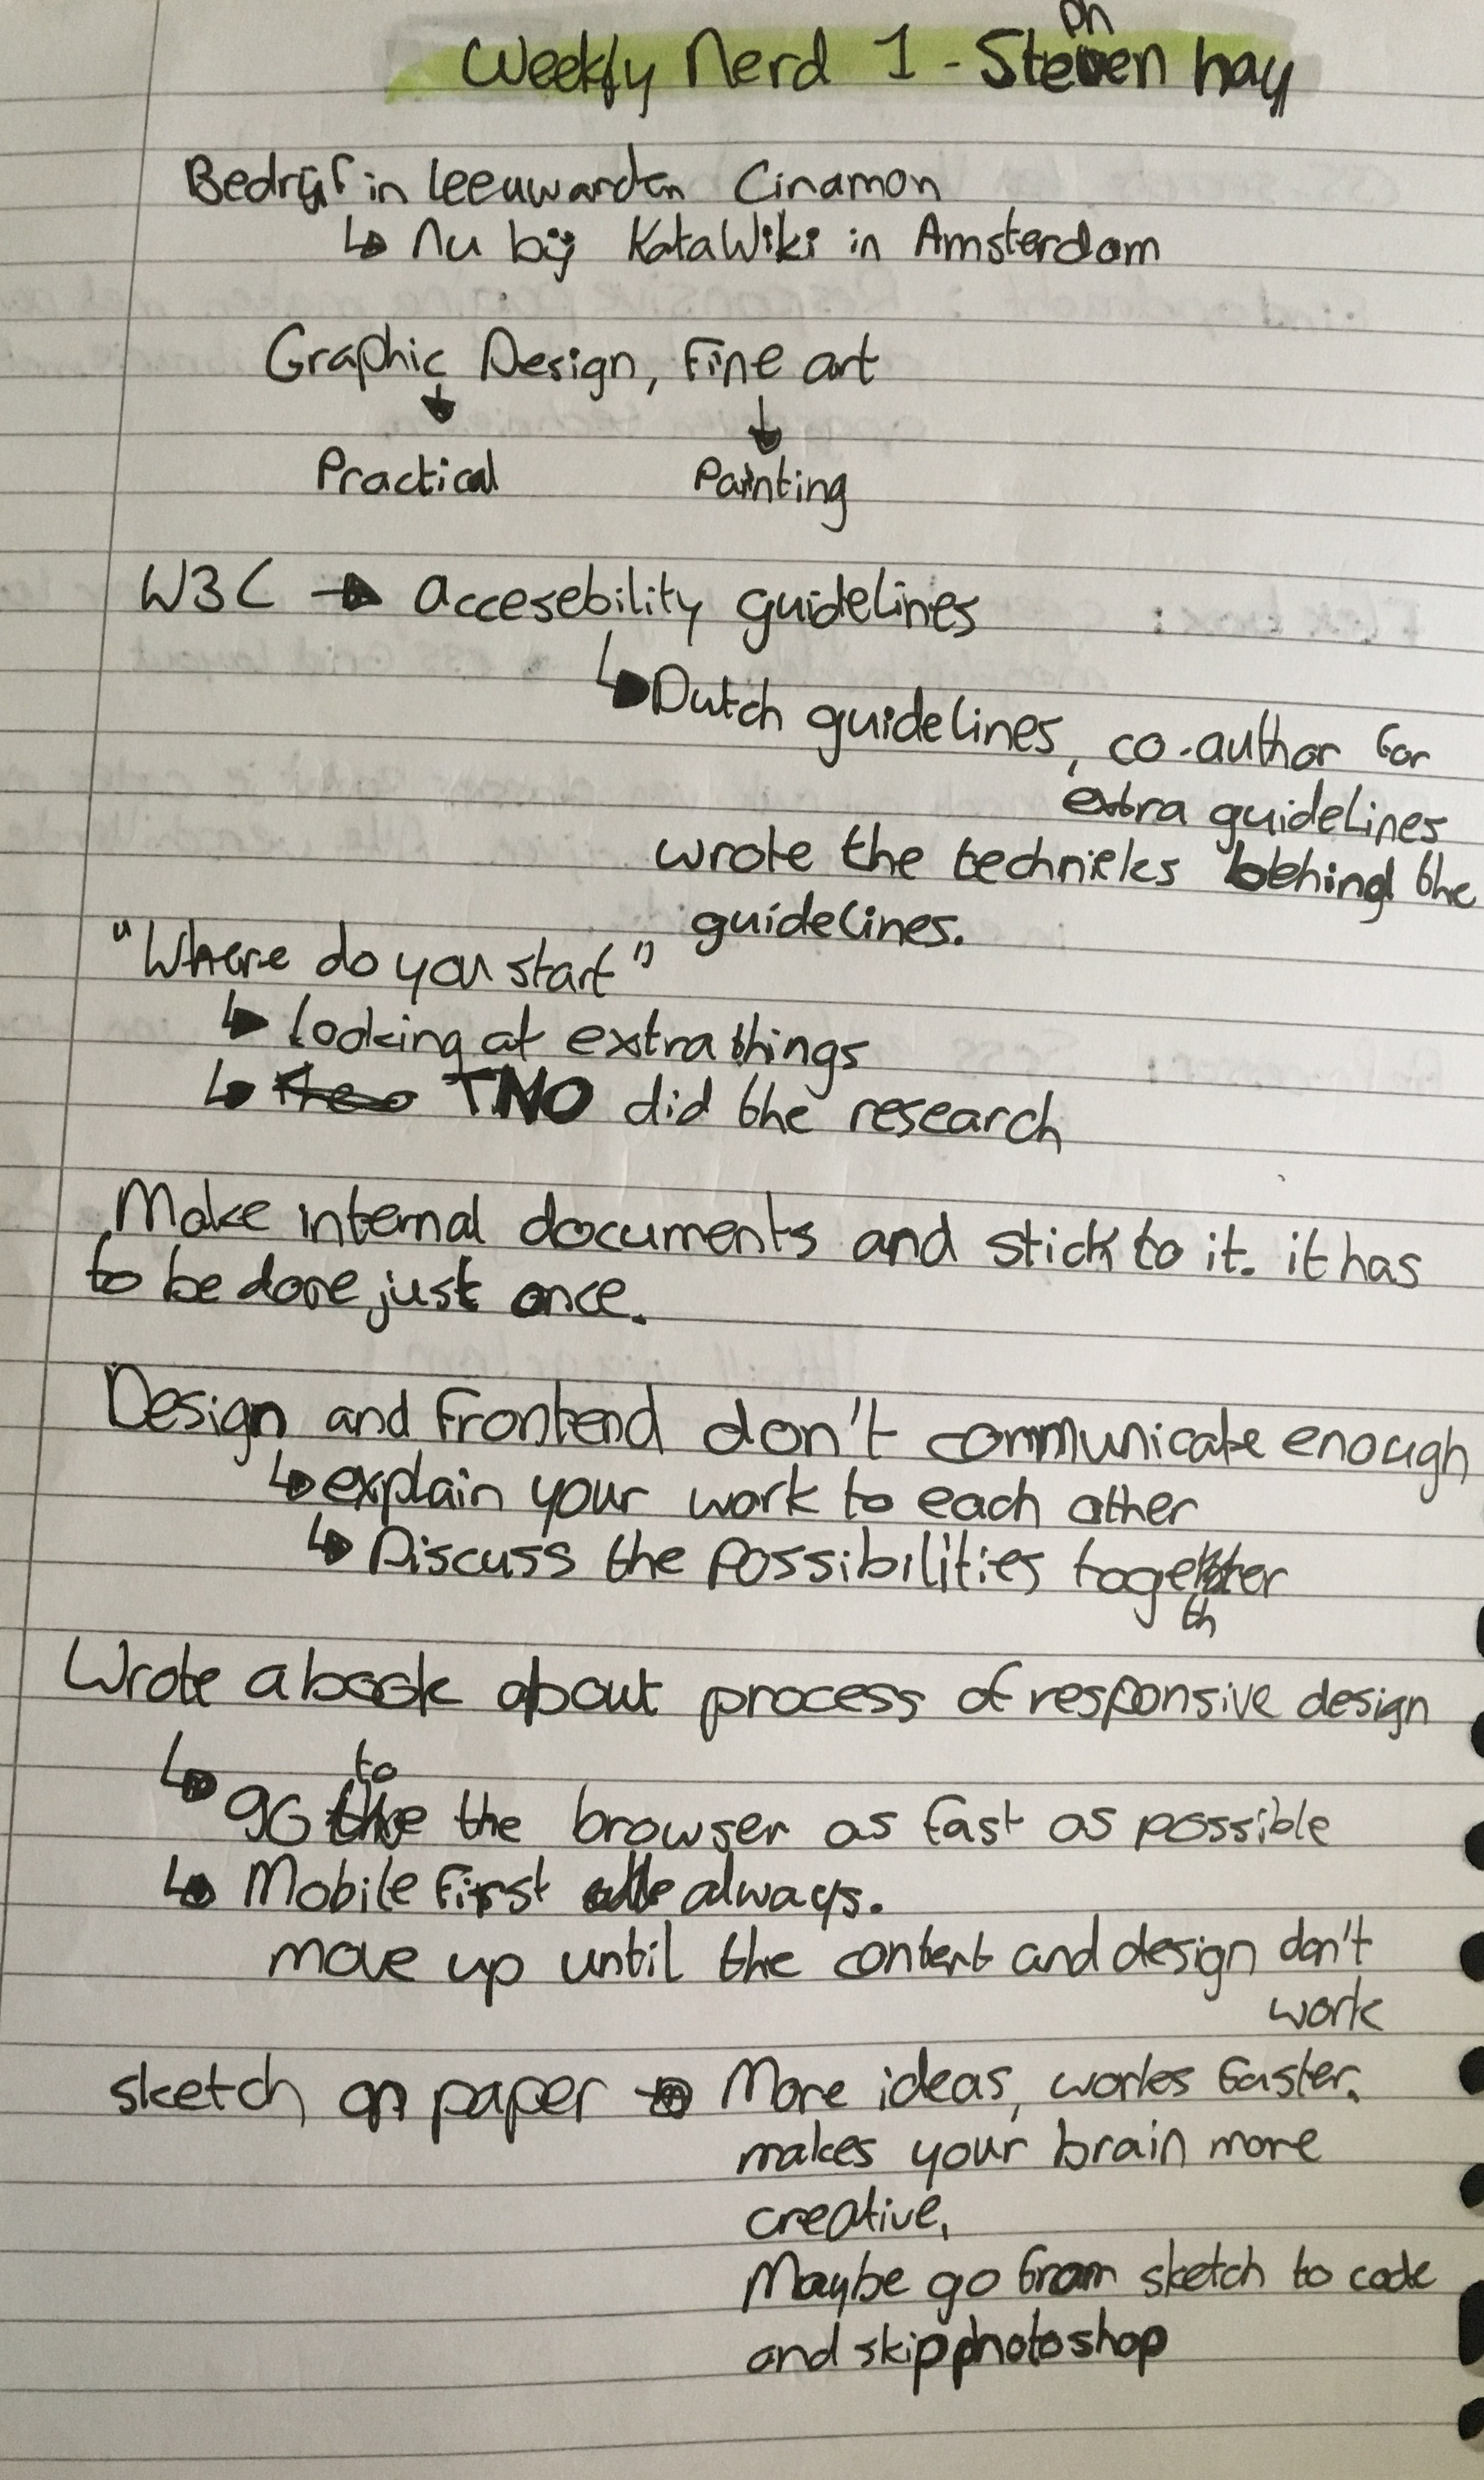 Weekly Nerd 1 - Stephen hay
Bedrijf in leeuwarden Cinamon
↳ nu bij KataWiki in Amsterdam
Graphic Design, Fine art
↓ ↓
Practical Painting
W3C → accesebility guidelines
↳ Dutch guidelines, co-author for
extra guidelines
wrote the technieks behind the
guidelines.
"Where do you start"
↳ looking at extra things
↳ TNO did the research
Make internal documents and stick to it. it has
to be done just once.
Design and Frontend don't communicate enough
↳ explain your work to each other
↳ Discuss the possibilities together
Wrote a book about process of responsive design
↳ go to the browser as fast as possible
↳ Mobile First always.
move up until the content and design don't
work
sketch on paper → More ideas, works faster.
makes your brain more
creative,
Maybe go from sketch to code
and skip photoshop